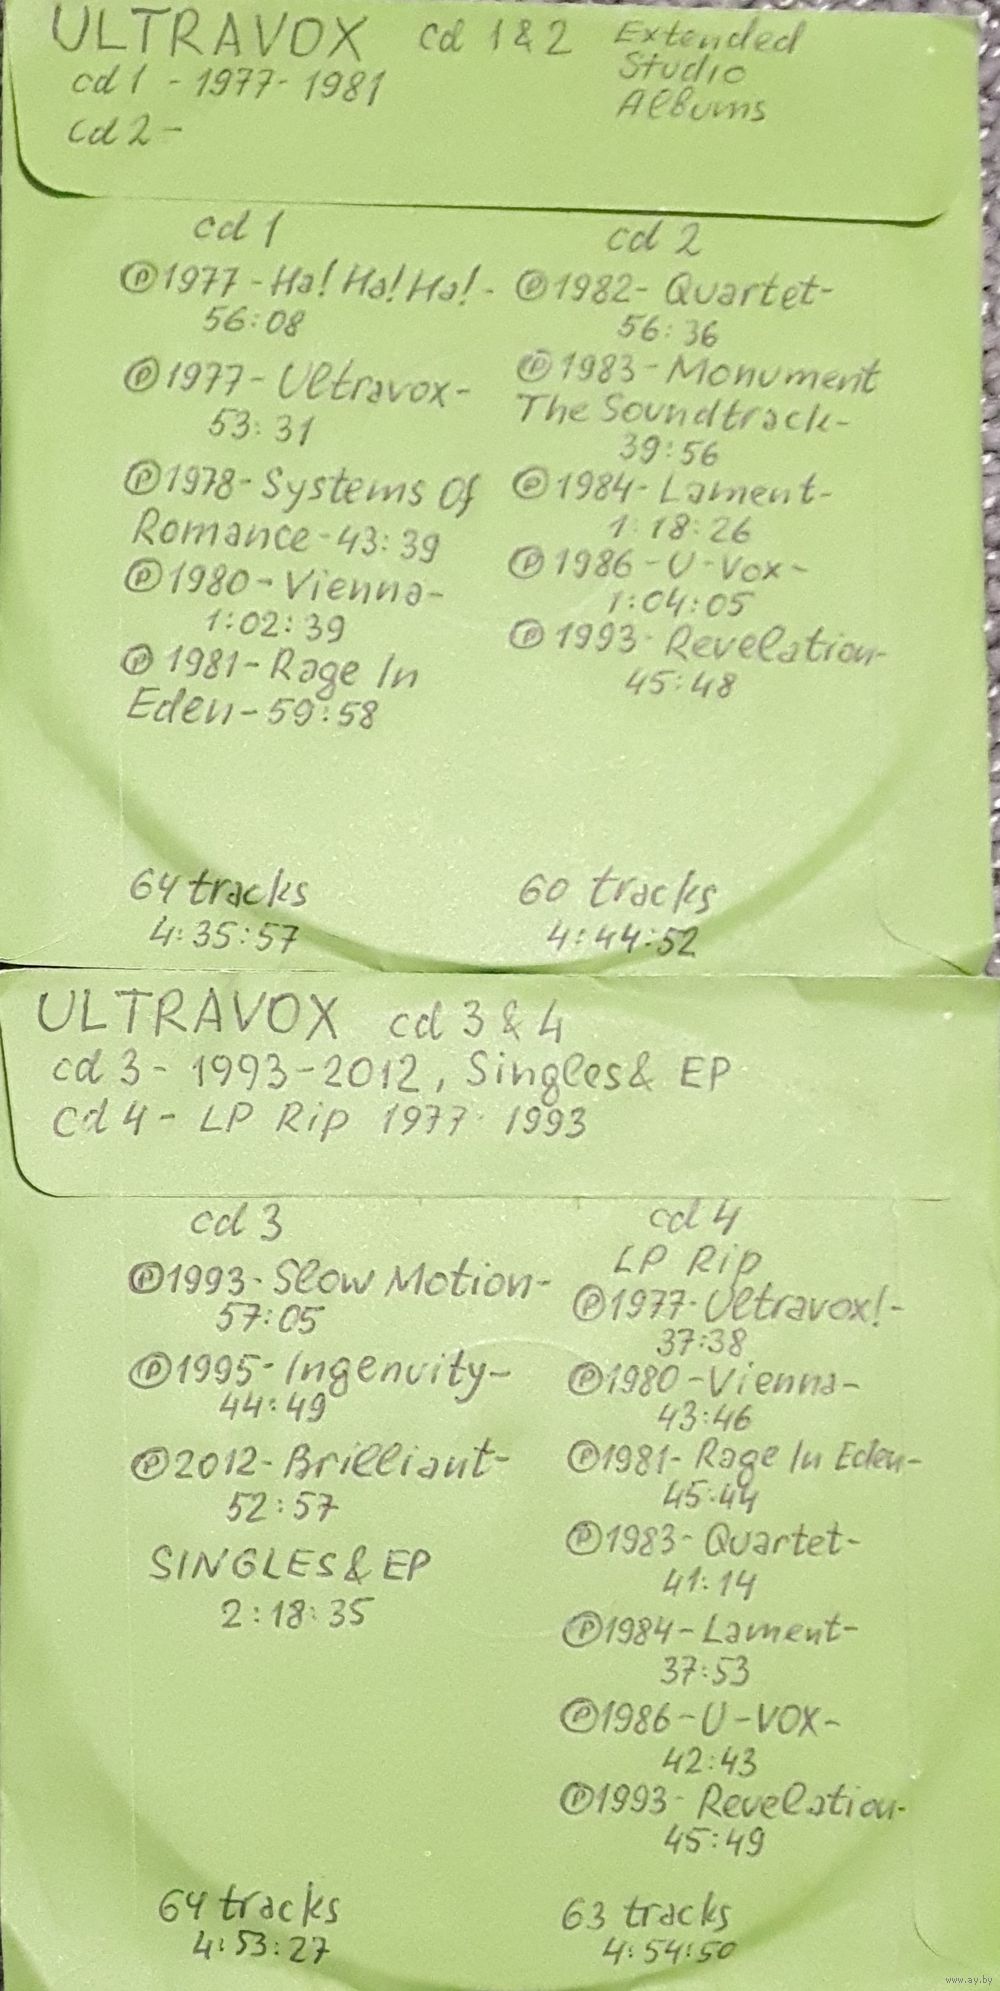 ULTRAVOX cd 1 & 2 Extended
Studio
Albums
cd 1 - 1977 - 1981
cd 2 -
cd 1
℗1977 - Ha! Ha! Ha! -
56:08
℗1977 - Ultravox -
53:31
℗1978 - Systems Of
Romance - 43:39
℗1980 - Vienna -
1:02:39
℗1981 - Rage In
Eden - 59:58
64 tracks
4:35:57
cd 2
℗1982 - Quartet -
56:36
℗1983 - Monument
The Soundtrack -
39:56
℗1984 - Lament -
1:18:26
℗1986 - U-Vox -
1:04:05
℗1993 - Revelation -
45:48
60 tracks
4:44:52
ULTRAVOX cd 3 & 4
cd 3 - 1993-2012, Singles & EP
cd 4 - LP Rip 1977-1993
cd 3
℗1993 - Slow Motion -
57:05
℗1995 - Ingenuity -
44:49
℗2012 - Brilliant -
52:57
SINGLES & EP
2:18:35
64 tracks
4:53:27
cd 4
LP Rip
℗1977 - Ultravox! -
37:38
℗1980 - Vienna -
43:46
℗1981 - Rage In Eden -
45:44
℗1983 - Quartet -
41:14
℗1984 - Lament -
37:53
℗1986 - U-VOX -
42:43
℗1993 - Revelation -
45:49
63 tracks
4:54:50
www.ay.by